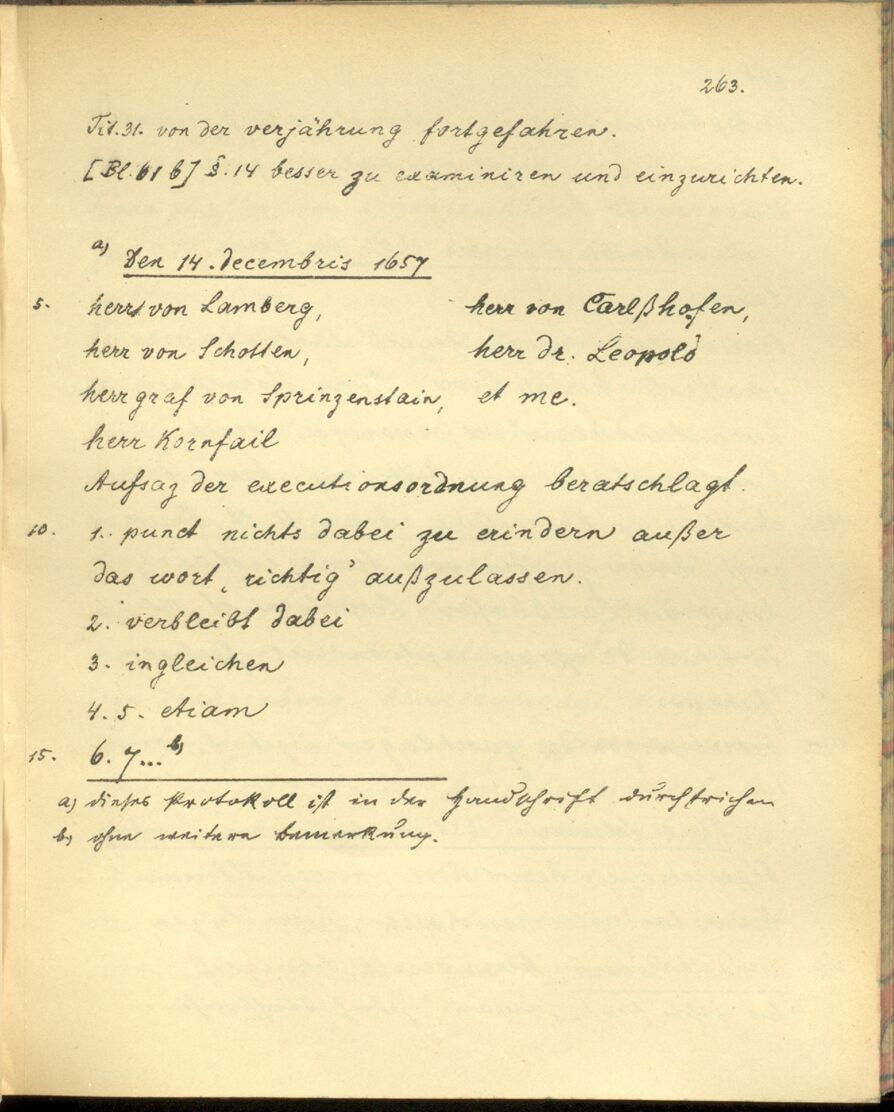 263.
Tit. 31. von der verjährung fortgefahren.
[Bl. 61 b] §. 14 besser zu examiniren und einzurichten.
a) Den 14. decembris 1657
5. herr von Lamberg, herr von Carlßhofen,
herr von Schotten, herr dr. Leopold
herr graf von Sprinzenstain, et me.
herr Kornfail
Aufsaz der executionsordnung beratschlagt.
10. 1. punct nichts dabei zu erindern außer
das wort ‚richtig’ außzulassen.
2. verbleibt dabei
3. ingleichen
4. 5. etiam
15. 6. 7... b)
a) dieses Protokoll ist in der Handschrift durchstrichen
b) ohne weitere Bemerkung.